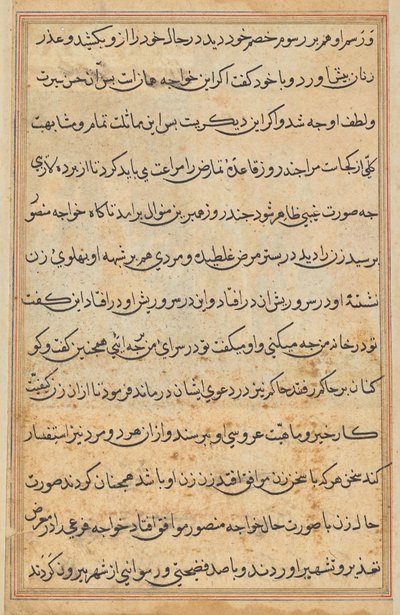 و رسم او هم بر رسوم خصم خود دید در حال خود را ازو بکشید و عذر
زنان پیش آورد و با خود گفت اگر این خواجه همان است پس آن حسن سیرت
و لطف او چه شد و اگر این دیکریست پس این مماثلت تمام و مشابهت
کلی از کجاست مرا چند روز قاعدهٔ تمارض را مراعت می باید کرد تا از پرده لاریبی
چه صورت غیبی ظاهر شود چند روز همبرین منوال برامد تا کاه خواجه منصور
برسید زن را دید در بستر مرض غلطیده و مردی هم بر شبهه او پهلوی زن
نشسته او در سر و ریش ان درافتاد و این در سر و ریش او درافتاد این کفت
تو در خانه من چه میکنی و او میکفت تو در سرای من چه آیی همچنین کفت و کو
کنان بر حاکم رفتند حاکم نیز در دعوی ایشان درماند فرمود تا از ان زن کیفیت
کار خیر و ماهیت عروسی او بپرسند و از ان هر دو مرد نیز استفسار
کنند سخن هر که با سخن زن موافق افتد زن زن او باشد همچنان کردند صورت
حال زن با صورت حال خواجه منصور موافق افتاد خواجه فرعی را در معرض
تعذیر و تشهیر اوردند و با صد فضیحتی و رسوائی از شهر بیرون کردند